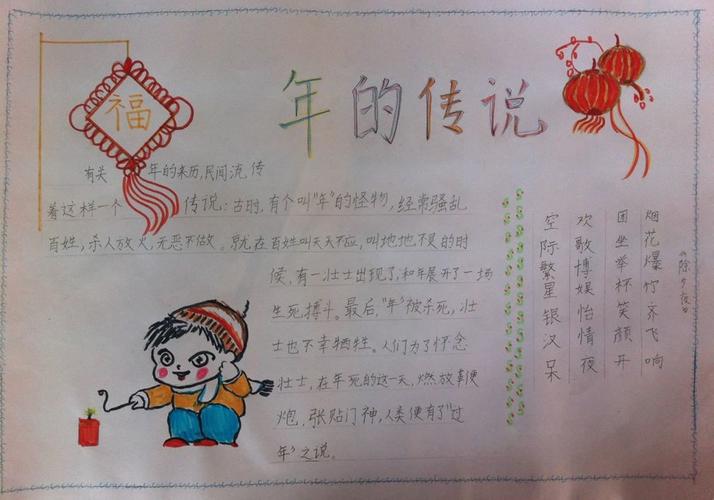 福
年的传说
有关 年的来历,民间流传
着这样一个 传说:古时,有个叫“年”的怪物,经常骚乱
百姓,杀人放火,无恶不做。就在百姓叫天天不应,叫地地不灵的时
候,有一壮士出现了,和年展开了一场
生死搏斗。最后,“年”被杀死,壮
士也不幸牺牲。人们为了怀念
壮士,在年死的这一天,燃放鞭
炮,张贴门神,人类便有了“过
年”之说。
《除夕夜》
烟花爆竹齐飞响
团坐举杯笑颜开
欢歌博娱怡情夜
空际繁星银汉呆